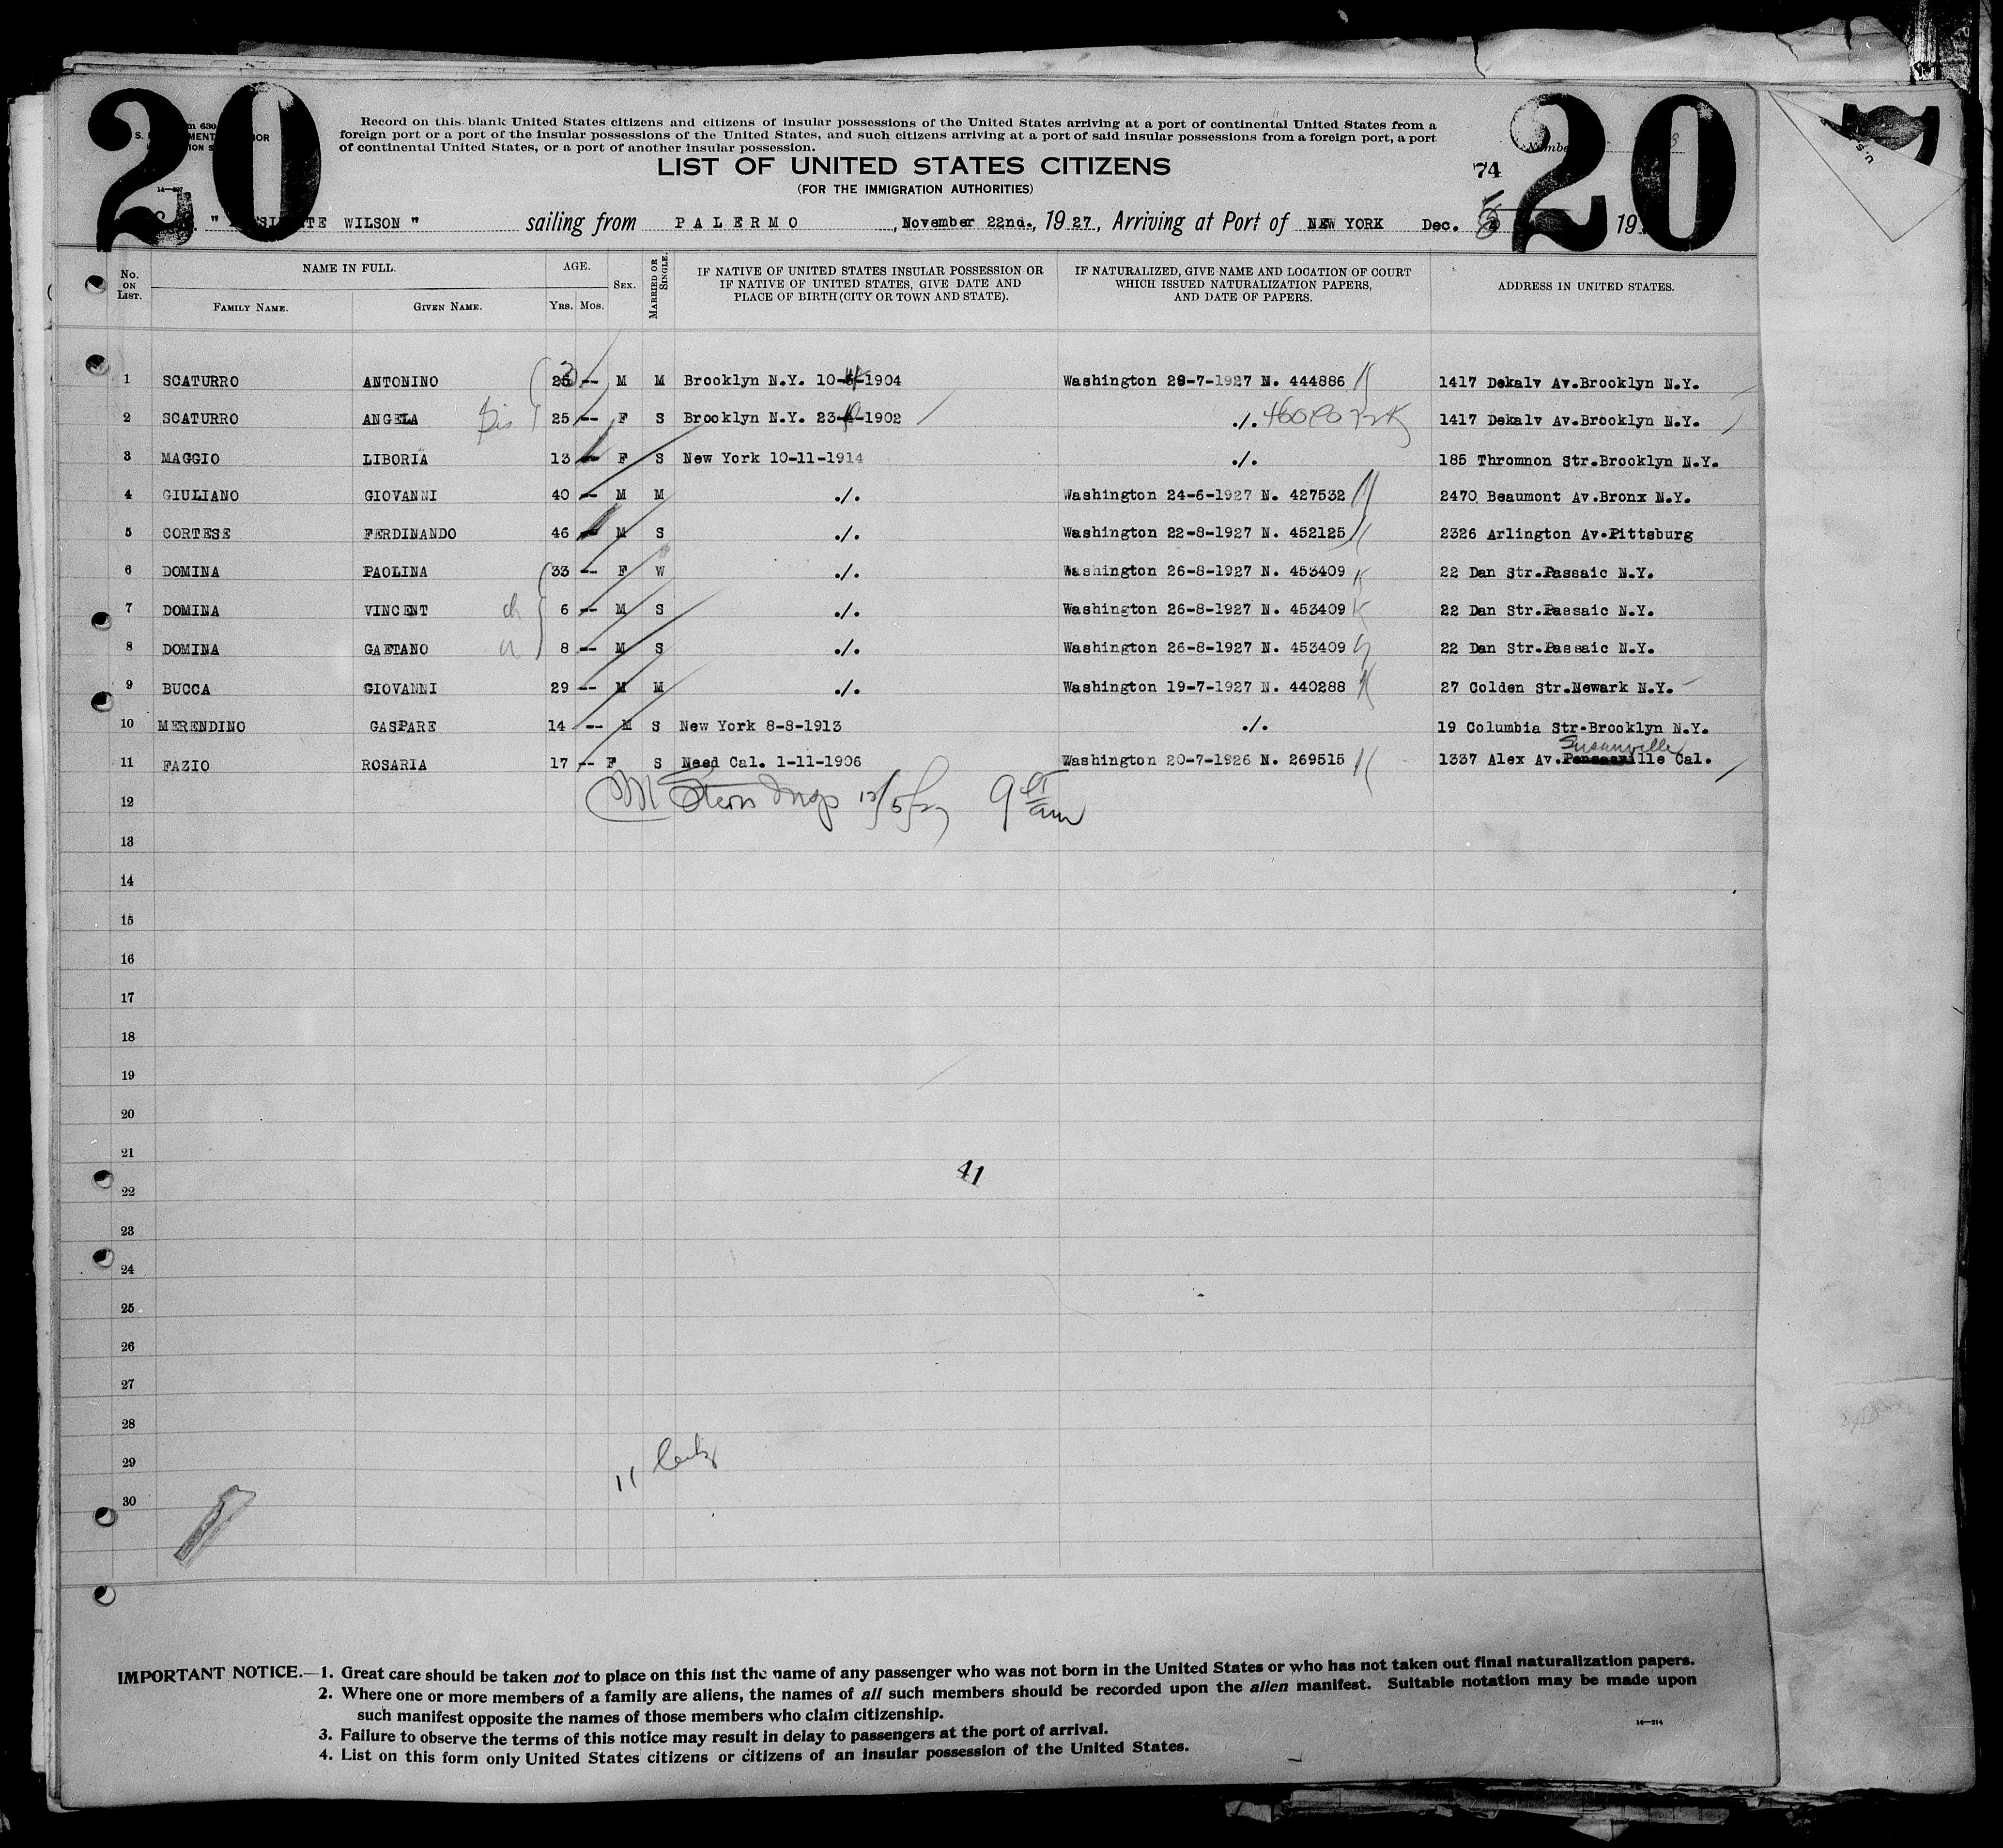 20
20
Record on this blank United States citizens and citizens of insular possessions of the United States arriving at a port of continental United States from a
foreign port or a port of the insular possessions of the United States, and such citizens arriving at a port of said insular possessions from a foreign port, a port
of continental United States, or a port of another insular possession.
LIST OF UNITED STATES CITIZENS
(FOR THE IMMIGRATION AUTHORITIES)
74
WILSON " sailing from PALERMO , November 22nd., 1927, Arriving at Port of NEW YORK Dec. 19
No. ON LIST.
NAME IN FULL.
FAMILY NAME. GIVEN NAME.
AGE.
Yrs. Mos.
SEX.
MARRIED OR SINGLE.
IF NATIVE OF UNITED STATES INSULAR POSSESSION OR
IF NATIVE OF UNITED STATES, GIVE DATE AND
PLACE OF BIRTH (CITY OR TOWN AND STATE).
IF NATURALIZED, GIVE NAME AND LOCATION OF COURT
WHICH ISSUED NATURALIZATION PAPERS,
AND DATE OF PAPERS.
ADDRESS IN UNITED STATES.
1 SCATURRO ANTONINO -- M M Brooklyn N.Y. 10- -1904 Washington 29-7-1927 N. 444886 1417 Dekalv Av.Brooklyn N.Y.
2 SCATURRO ANGELA 25 -- F S Brooklyn N.Y. 23- -1902 ./. 1417 Dekalv Av.Brooklyn N.Y.
3 MAGGIO LIBORIA 13 -- F S New York 10-11-1914 ./. 185 Thromnon Str.Brooklyn N.Y.
4 GIULIANO GIOVANNI 40 -- M M ./. Washington 24-6-1927 N. 427532 2470 Beaumont Av.Bronx N.Y.
5 CORTESE FERDINANDO 46 -- M S ./. Washington 22-8-1927 N. 452125 2326 Arlington Av.Pittsburg
6 DOMINA PAOLINA 33 -- F W ./. Washington 26-8-1927 N. 453409 22 Dan Str.Passaic N.Y.
7 DOMINA VINCENT ch 6 -- M S ./. Washington 26-8-1927 N. 453409 22 Dan Str.Passaic N.Y.
8 DOMINA GAETANO 8 -- M S ./. Washington 26-8-1927 N. 453409 22 Dan Str.Passaic N.Y.
9 BUCCA GIOVANNI 29 -- M M ./. Washington 19-7-1927 N. 440288 27 Colden Str.Newark N.Y.
10 MERENDINO GASPARE 14 -- M S New York 8-8-1913 ./. 19 Columbia Str.Brooklyn N.Y.
Susanville
11 FAZIO ROSARIA 17 -- F S Need Cal. 1-11-1906 Washington 20-7-1926 N. 269515 1337 Alex Av. Cal.
12
13
14
15
16
17
18
19
20
21
41
22
23
24
25
26
27
28
29
30
IMPORTANT NOTICE.—1. Great care should be taken not to place on this list the name of any passenger who was not born in the United States or who has not taken out final naturalization papers.
2. Where one or more members of a family are aliens, the names of all such members should be recorded upon the alien manifest. Suitable notation may be made upon
such manifest opposite the names of those members who claim citizenship.
3. Failure to observe the terms of this notice may result in delay to passengers at the port of arrival.
14—214
4. List on this form only United States citizens or citizens of an insular possession of the United States.